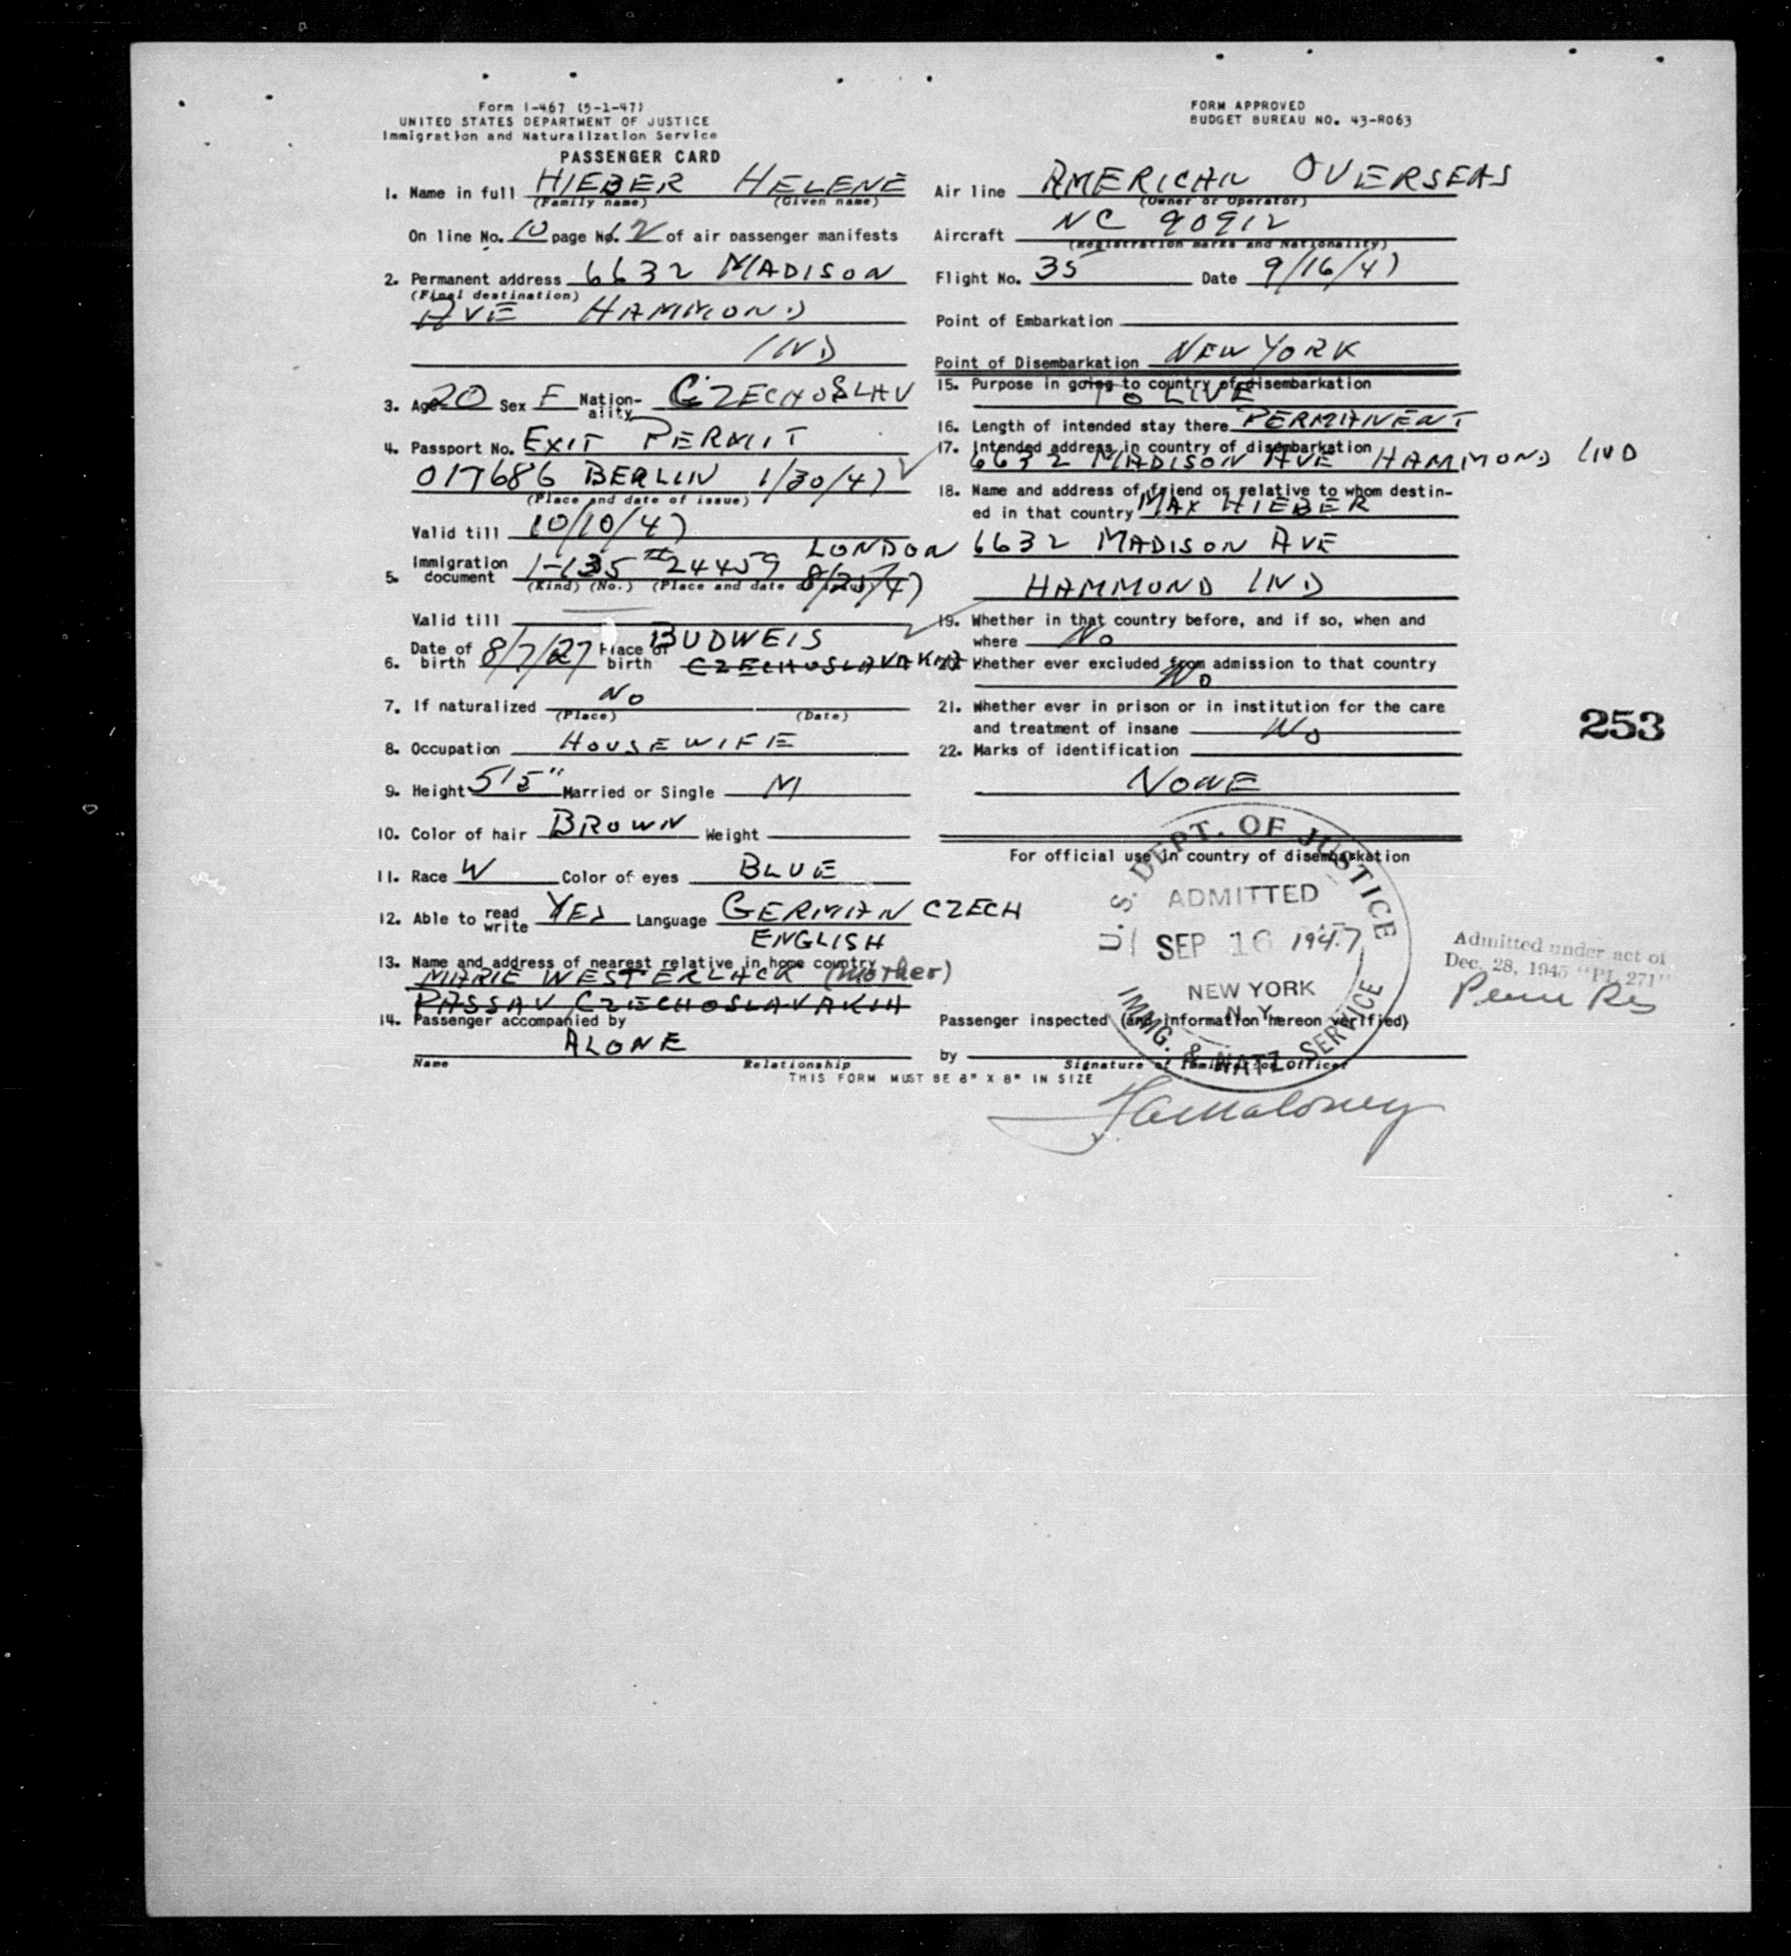 Form I-467 (5-1-47)
UNITED STATES DEPARTMENT OF JUSTICE
Immigration and Naturalization Service
PASSENGER CARD
FORM APPROVED
BUDGET BUREAU NO. 43-R063
1. Name in full HIEBER HELENE
(Family name) (Given name)
On line No. 10 page No. 12 of air passenger manifests
2. Permanent address 6632 MADISON
(Final destination)
AVE HAMMOND
IND
3. Age 20 Sex F Nation-ality CZECHOSLAV
4. Passport No. EXIT PERMIT
017686 BERLIN 1/30/47
(Place and date of issue)
Valid till 10/10/47
5. Immigration document I-135 #24459 LONDON
(Kind) (No.) (Place and date
Valid till
6. Date of birth 8/7/27 Place of birth BUDWEIS
CZECHOSLAVAKIA
7. If naturalized No
(Place) (Date)
8. Occupation HOUSEWIFE
9. Height 5'5" Married or Single M
10. Color of hair BROWN Weight
11. Race W Color of eyes BLUE
12. Able to read write YES Language GERMAN CZECH
ENGLISH
13. Name and address of nearest relative in home country
MARIE WESTERLACK (mother)
PASSAV CZECHOSLAVAKIA
14. Passenger accompanied by
ALONE
Name Relationship
THIS FORM MUST BE 8" X 8" IN SIZE
Air line AMERICAN OVERSEAS
(Owner or Operator)
Aircraft NC 90912
(Registration marks and Nationality)
Flight No. 35 Date 9/16/47
Point of Embarkation
Point of Disembarkation NEW YORK
15. Purpose in going to country of disembarkation
TO LIVE
16. Length of intended stay there PERMANENT
17. Intended address in country of disembarkation
6632 MADISON AVE HAMMOND IND
18. Name and address of friend or relative to whom destin-
ed in that country MAX HIEBER
6632 MADISON AVE
HAMMOND IND
19. Whether in that country before, and if so, when and
where No
20. Whether ever excluded from admission to that country
No
21. Whether ever in prison or in institution for the care
and treatment of insane No
22. Marks of identification
NONE
253
For official use in country of disembarkation
U. S. DEPT. OF JUSTICE
ADMITTED
SEP 16 1947
NEW YORK
N. Y.
IMMIG. & NATZ. SERVICE
Admitted under act of
Dec. 28, 1945 "PL 271"
Perm Res
Passenger inspected (and information hereon verified)
by
Signature of Immigration Officer